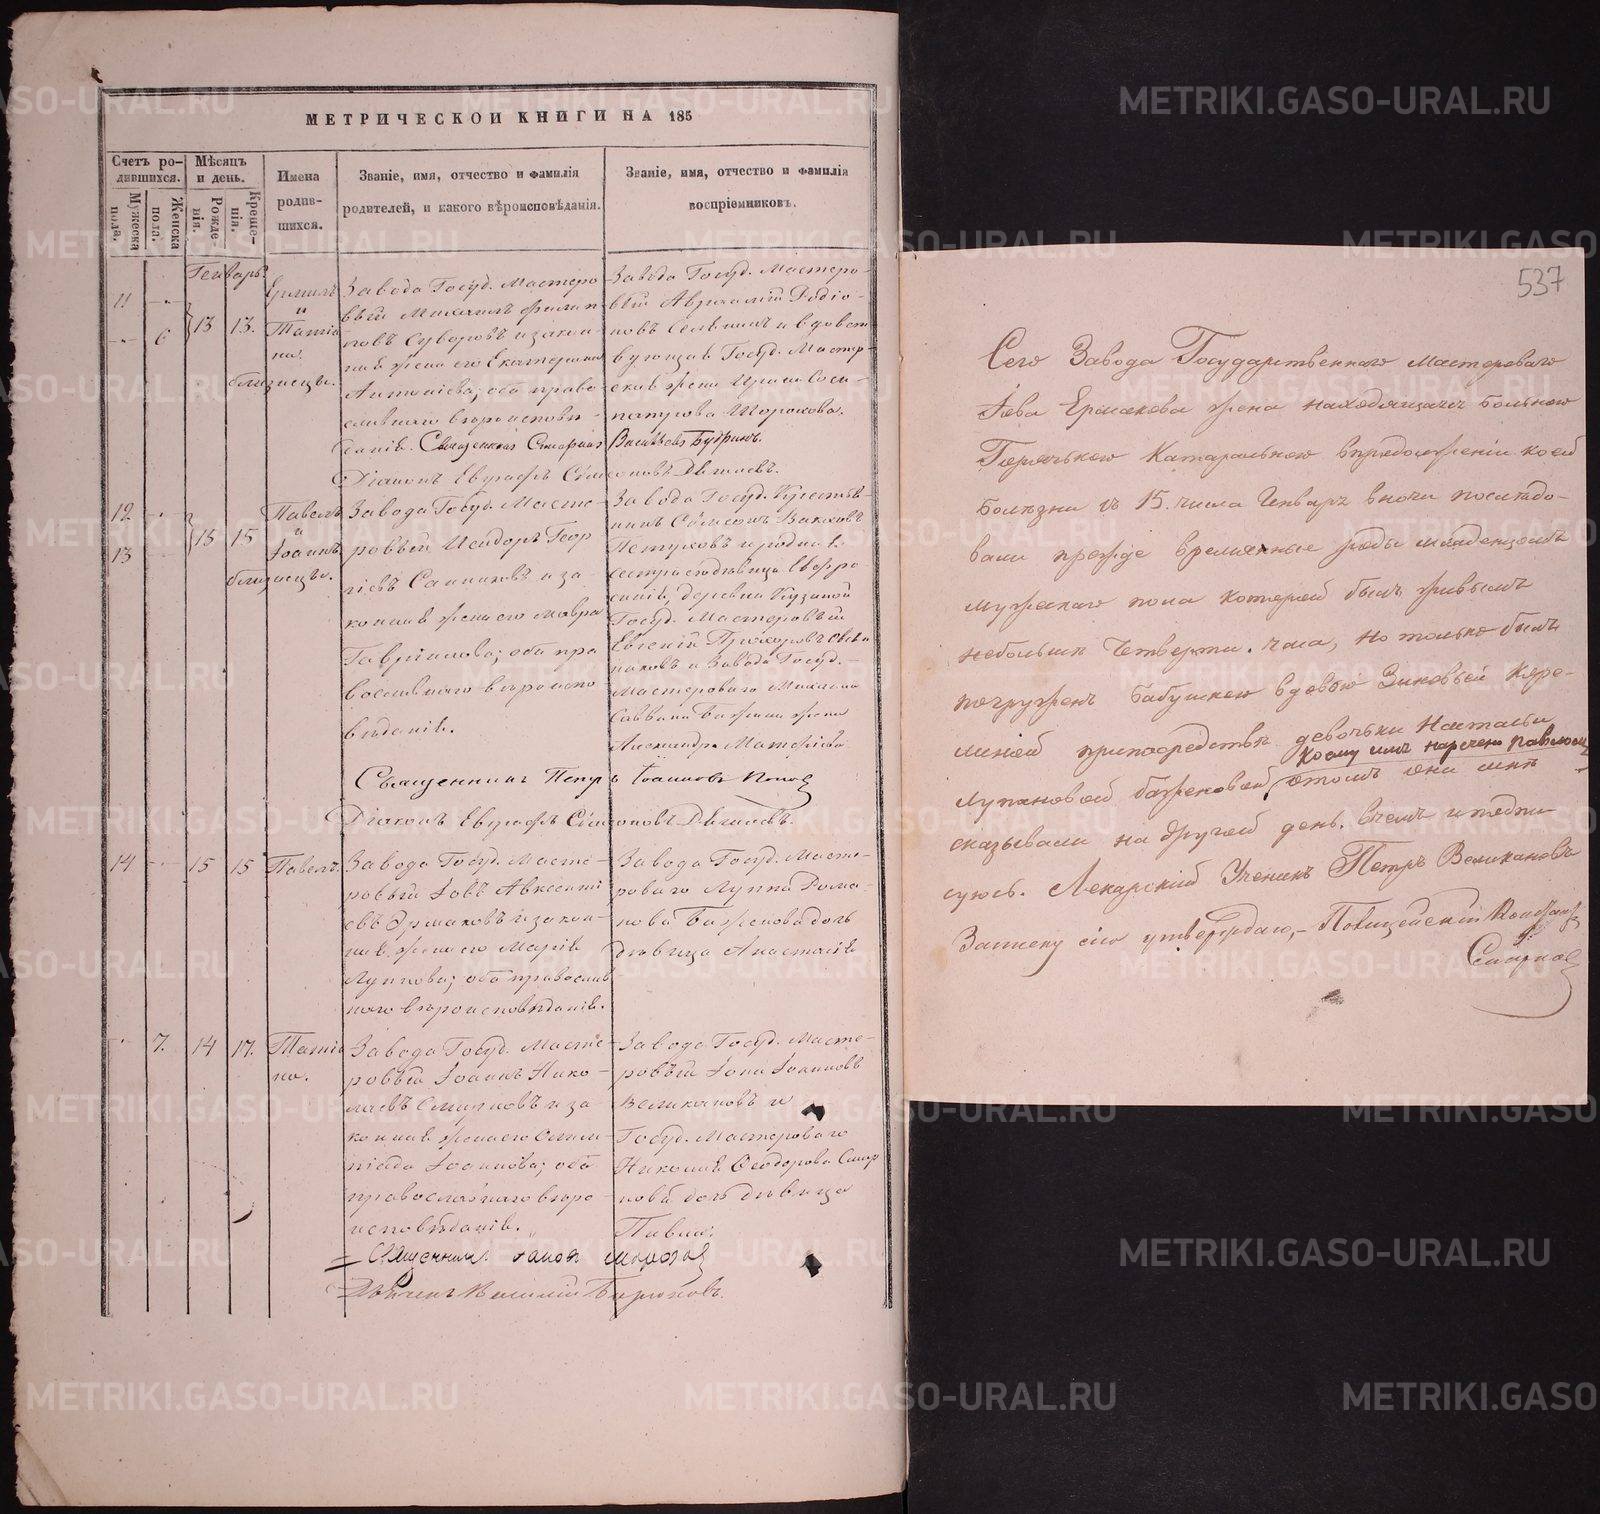 МЕТРИЧЕСКОЙ КНИГИ НА 185
Счетъ ро-
дившихся.
Мужеска
пола.
Женска
пола.
Мѣсяцъ
и день.
Рожде
нія.
Креще-
нія.
Имена
родив-
шихся.
Званіе, имя, отчество и фамилія
родителей, и какого вѣроисповѣданія.
Званіе, имя, отчество и фамилія
воспріемниковъ.
Генварь
11
6
13
13.
и
Татіа
на.
близнецы.
Завода Госуд. Мастеро
вый Михаилъ Филип
повъ Суворовъ и закон-
ная жена его Екатерина
Антоніева; оба право-
славнаго вѣроисповѣ-
данія.
Завода Госуд. Мастеро-
вый Родіо-
новъ и вдовст
вующая Госуд. Мастер-
ская жена Соси-
патрова
Священникъ Васильевъ
Діаконъ Евграфъ Симеоновъ
12
13
15
15
Павелъ
и
Іоаннъ
близнецы.
Завода Госуд. Масте-
ровый Исидоръ Геор
гіевъ Санниковъ и за-
конная жена его Мавра
Гавріилова; оба пра
вославнаго вѣроиспо-
вѣданія.
Завода Госуд. Крестья-
нинъ Симеонъ
Пѣтуховъ и родная
сестра его дѣвица Евфро
синія, деревни
Госуд. Мастеровый
Евгеній Прохоровъ
и Завода Госуд.
Мастероваго Михаила
Саввина жена
Александра Матфіева
Священникъ Петръ Іоанновъ Поповъ
Діаконъ Евграфъ Симеоновъ
14
15
15
Павелъ.
Завода Госуд. Масте-
ровый Іовъ Авксенті
евъ Эрмаковъ и закон-
ная жена его Марія
Луппова; оба православ
наго вѣроисповѣданія.
Завода Госуд. Масте-
роваго Луппа Рома-
нова Баженова дочь
дѣвица Анастасія
7.
14
17.
Татіа
на.
Завода Госуд. Масте
ровый Іоаннъ Нико-
лаевъ Смирновъ и за-
конная жена его Олим-
піада Іоаннова; оба
православнаго вѣро-
исповѣданія.
Завода Госуд. Масте-
ровый Іона Іоанновъ
Великановъ и
Госуд. Мастероваго
Николая Ѳеодорова Смир
нова дочь дѣвица
Павла.
Священникъ
Діаконъ Василій Бирюковъ.
537
Сего Завода Государственнаго мастероваго
Іова Ермакова жена находящаяся больною
Горячкою Катаральною впродолженіи коей
болезни съ 15. числа Генваря вночи последо-
вали прежде временные роды младенцомъ
мужскаго пола которой былъ живымъ
небольше Четверти часа, но только былъ
погруженъ бабушкою вдовою Зиновьей
припосредствѣ девочьки Настасьи
коему имя наречено Павломъ
Лупановой баженовой, отомъ они мнѣ
сказывали на другой день. вчемъ и подпи
суюсь. Лекарскій Ученикъ Петръ Великановъ
Записку сію утверждаю,- Полицейскій
METRIKI.GASO-URAL.RU